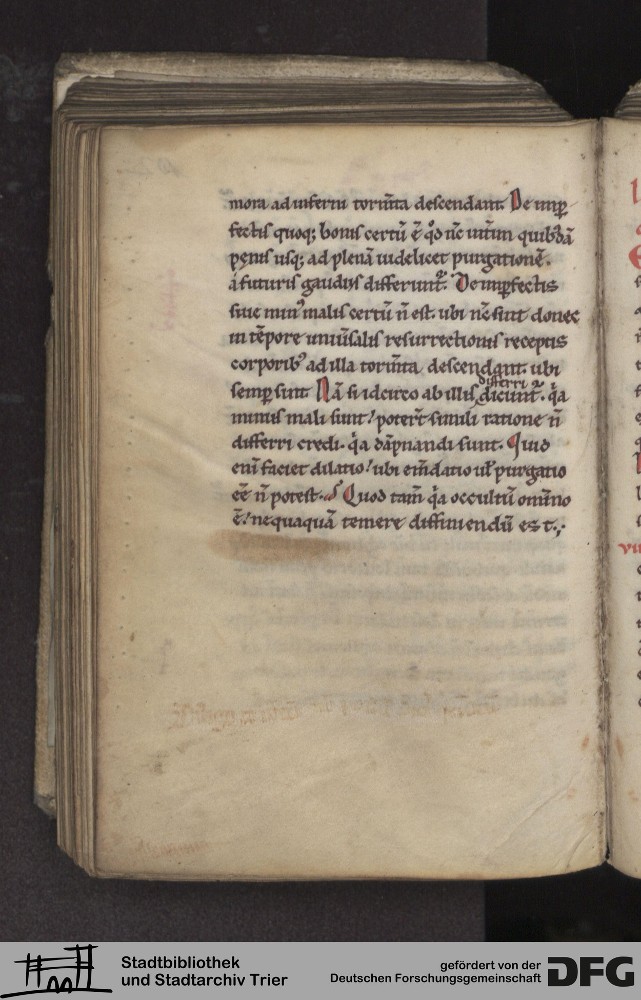 mora ad inferni torm̅ta descendant. De imp̲
fectis quoq; bonis certū ē qd̕ nc̅ int̕im quibꝰdā
pęnis usq; ad plenā uidelicet purgationē.
á futuris gaudiis differunt᷑. De imp̲fectis
siue min᷒ malis certū n̄ est. ubi nc̅ sint donec
in tēpore uniu̕salis resurrectionis receptis
corporib᷒ ad illa torm̅ta descendant. ubi
semp̲ sint. Nā si idcirco ab illis differri dicunt᷑. qͥa
minus mali sunt! poterit simili ratione n̄
differri credi. qͥa dāpnandi sunt. Quid
eni̅ faciet dilatio! ubi em̅datio ul̕ purgatio
eē n̄ potest. Quod tam̅ qͥa occultū om̅ino
ē! nequaquā temere diffiniendū est.
Stadtbibliothek
und Stadtarchiv Trier
gefördert von der
Deutschen Forschungsgemeinschaft
DFG